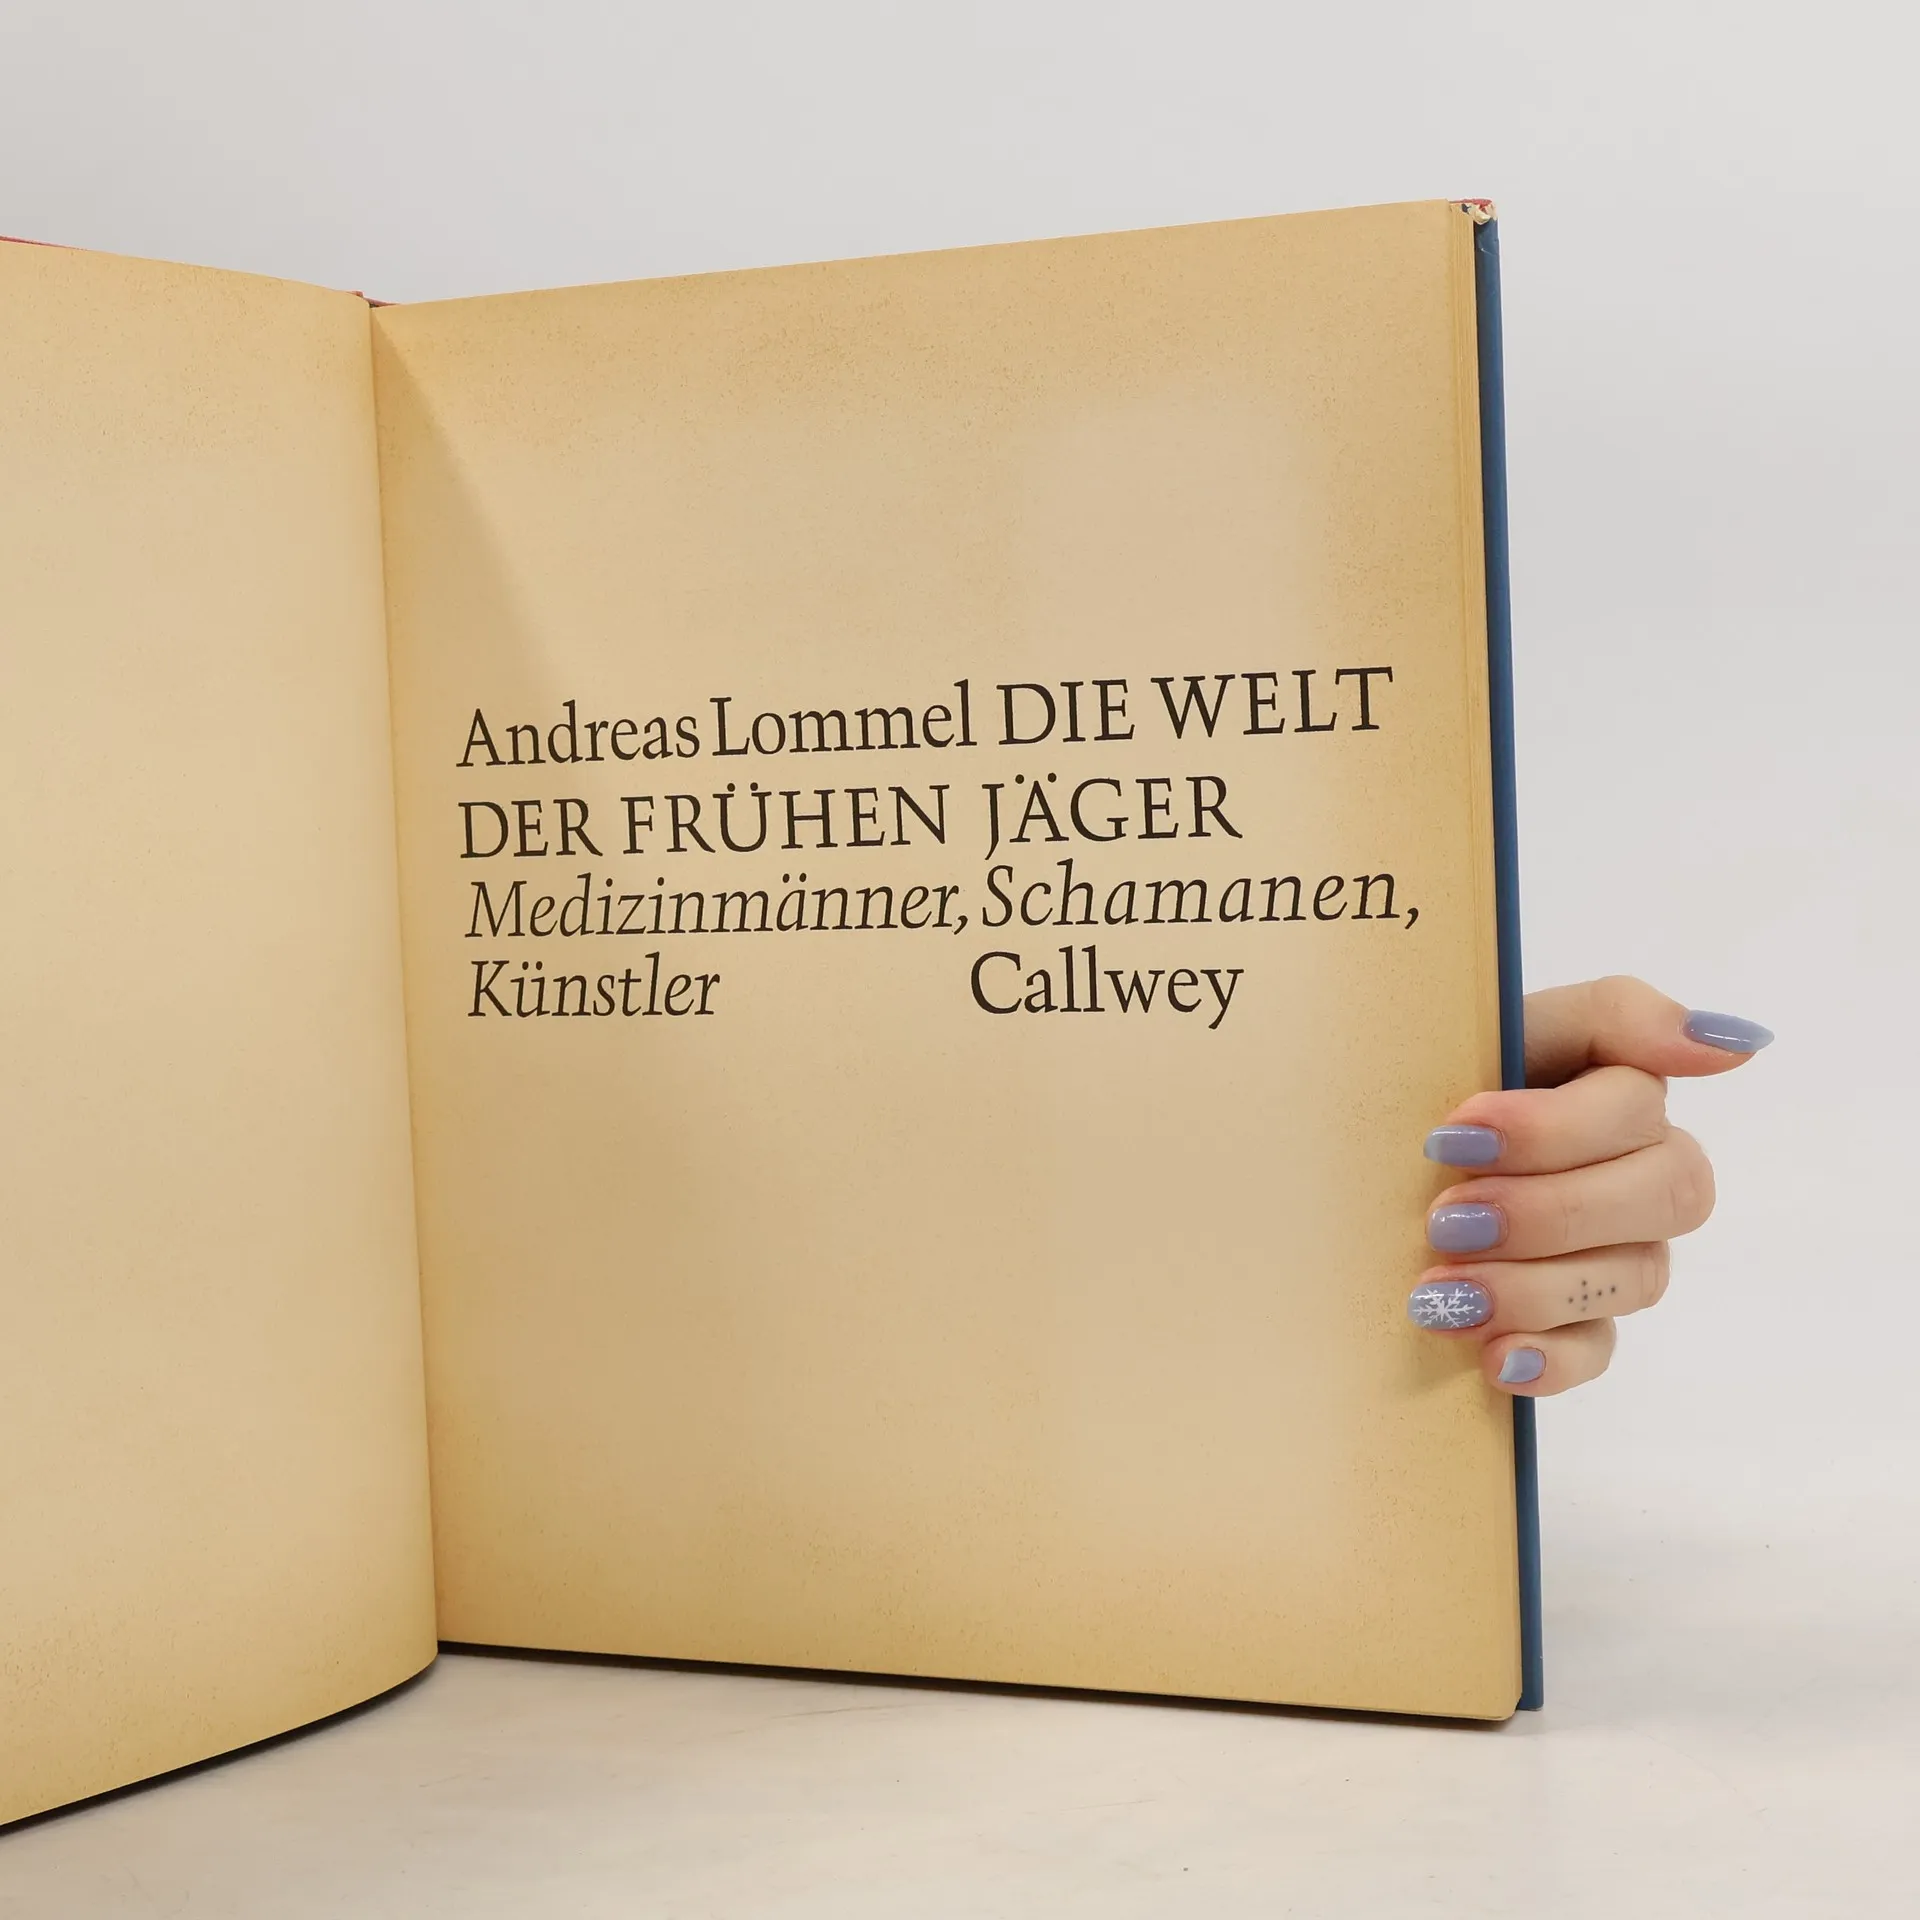 Andreas Lommel DIE WELT
DER FRÜHEN JÄGER
Medizinmänner, Schamanen,
Künstler Callwey